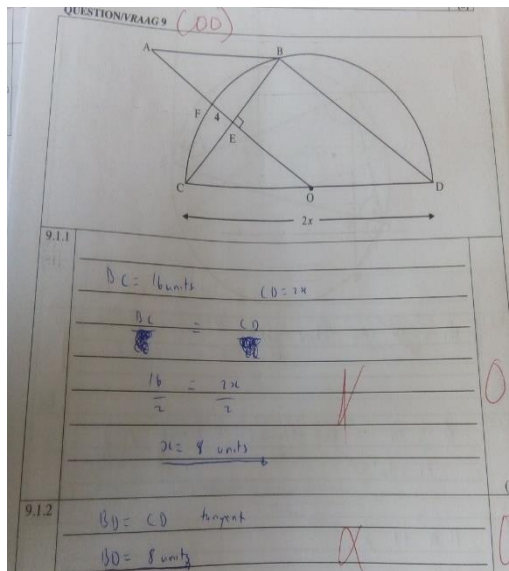 QUESTION/VRAAG 9
A
B
F
4
E
C
O
D
2x
9.1.1
BC = 16 units CD = 2x
BC = CD
16/2 = 2x/2
x = 8 units
0
9.1.2
BD = CD tangent
BD = 8 units